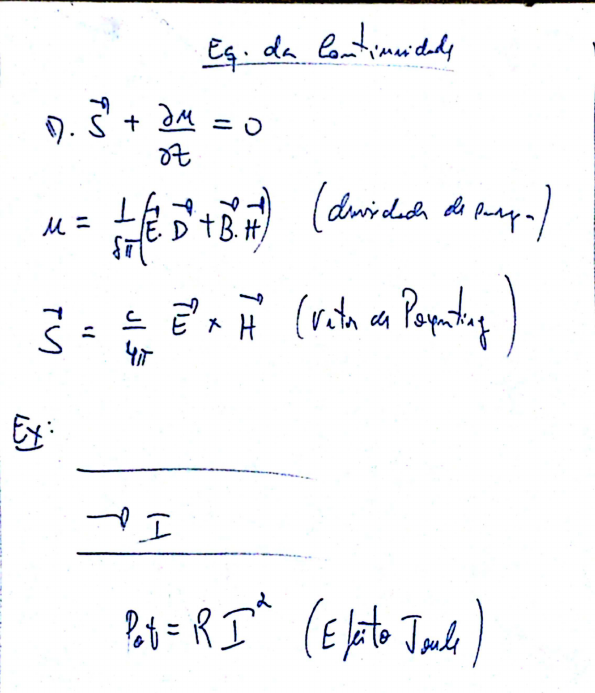 Eq. da Continuidade
∇. S⃗ + ∂u/∂t = 0
u = 1/8π (E⃗. D⃗ + B⃗. H⃗) (densidade de energia)
S⃗ = c/4π E⃗ × H⃗ (vetor de Poynting)
Ex:
→ I
Pot = R I² (Efeito Joule)